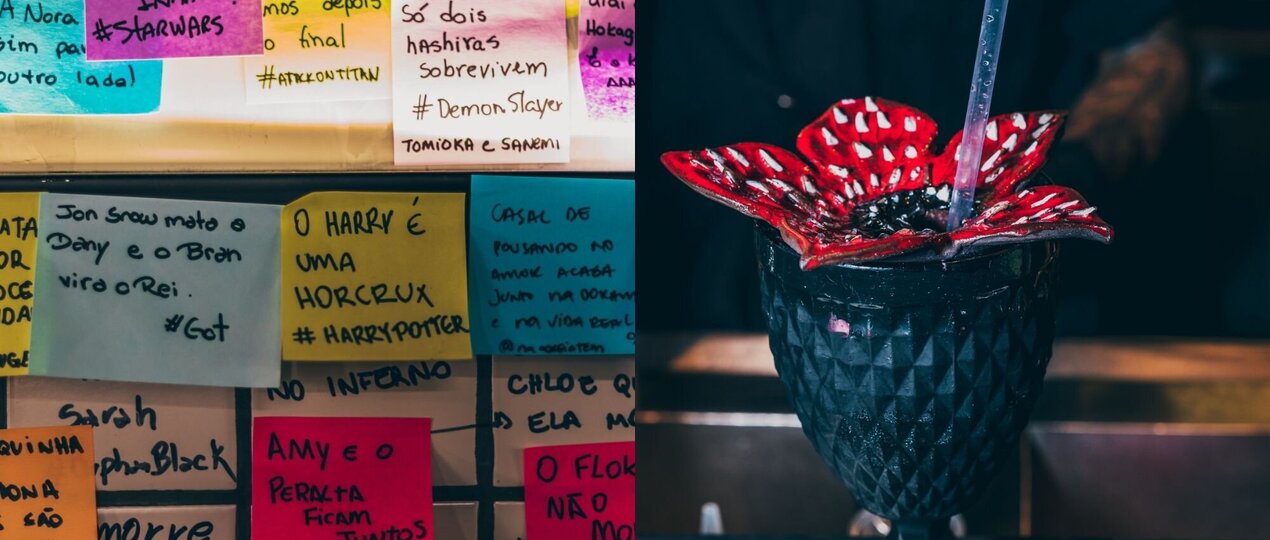 A Nora
outro lado!
#STARWARS
depois
o final
#ATACKONTITAN
Só dois
hashiras
sobrevivem
#DemonSlayer
TOMIOKA e SANEMI
Hokag
Jon Snow mata a
Dany e o Bran
vira o Rei.
#Got
O HARRY É
UMA
HORCRUX
#HARRYPOTTER
CASAL DE
POUSANDO NO
AMOR ACABA
JUNTO NA
E NA VIDA REAL
NO INFERNO
Sarah
Black
CHLOE QU
ELA MO
QUINHA
SÃO
morre
AMY E O
PERALTA
FICAM
JUNTOS
O FLOK
NÃO
MO